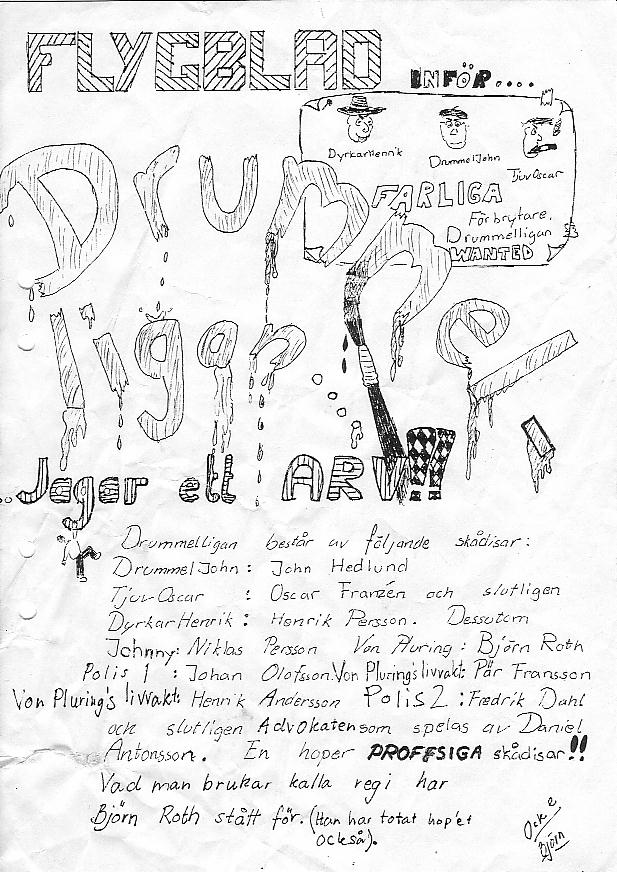 FLYGBLAD INFÖR....
DyrkarHenrik
DrummelJohn
TjuvOscar
FARLIGA
Förbrytare.
Drummelligan
WANTED
Drummel
ligan
..Jagar ett ARV!!
Drummelligan består av följande skådisar:
DrummelJohn: John Hedlund
Tjuv-Oscar : Oscar Franzén och slutligen
DyrkarHenrik: Henrik Persson. Dessutom
Johnny: Niklas Persson Von Pluring: Björn Roth
Polis 1 : Johan Olofsson. Von Pluring's livvakt: Pär Fransson
Von Pluring's livvakt: Henrik Andersson Polis 2: Fredrik Dahl
och slutligen Advokaten som spelas av Daniel
Antonsson. En hoper PROFFSIGA skådisar!!
Vad man brukar kalla regi har
Björn Roth stått för. (Han har totat hop'et
också).
Ocke
Björn